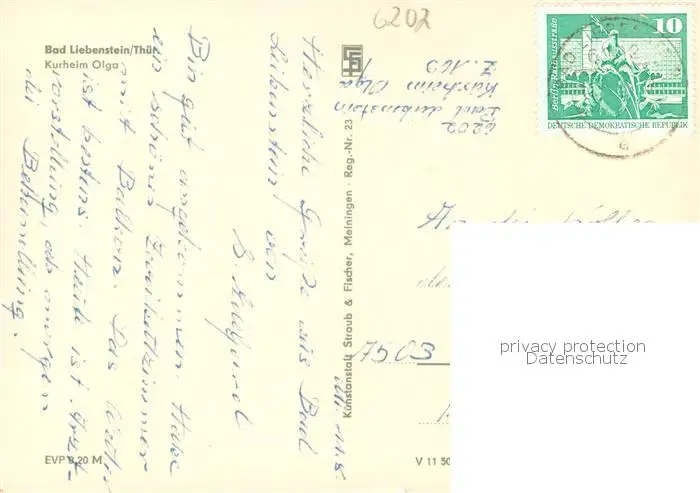 6202
Bad Liebenstein/Thür.
Kurheim Olga
Herzliche Grüße aus Bad
Liebenstein von
Bin gut angekommen. Habe
ein schönes Zweibettzimmer
mit Balkon. Das Wetter
ist bestens. Heute ist Arzt-
vorstellung, ab morgen
die Behandlung.
6202
Bad Liebenstein
Kurheim Olga
Z. 169
Künstanstalt Straub & Fischer, Meiningen · Reg.-Nr. 23
10
Berlin, Rathausstraße
DEUTSCHE DEMOKRATISCHE REPUBLIK
e
An
7503
privacy protection
Datenschutz
EVP 0,20 M
V 11 50